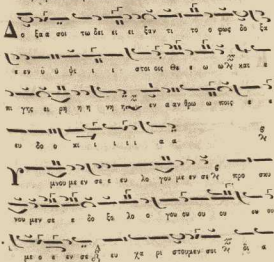 Δο ξα α σοι τω δει ει ει ξαν τι το φως δο ξα
ε εν υ υ ψι ι ι στοι οις Θε ε ω ω και ε
πι γης ει ρη η νη η εν α αν θρω ω ποις ε
ευ δο κι ι ι ι α α
Υ μνου μεν σε ε υ λο γου με εν σε προ σκυ
νου μεν σε ε δο ξα λο ο γου ου ου ου
με ο ε εν σε ευ χα ρι στουμεν σοι δι α